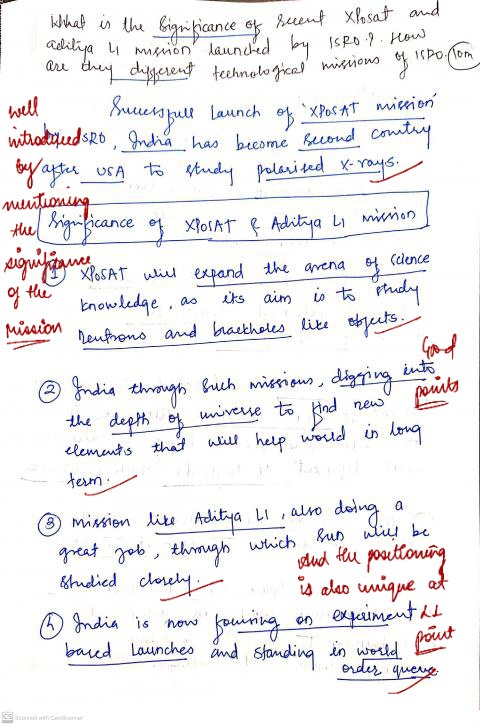 What is the Significance of recent XPosat and
aditya L1 mission launched by ISRO? How
are they different technological missions of ISRO. 10m
Successfull launch of 'XPOSAT mission'
by ISRO, India has become Second country
after USA to study polarised X-rays.
well
introduced
by
mentioning
the
significance
of the
mission
Significance of XPOSAT & Aditya L1 mission
① XPOSAT will expand the arena of science
knowledge, as its aim is to study
neutrons and blackholes like objects.
Good
points
② India through such missions, digging into
the depth of universe to find new
elements that will help world in long
term.
③ Mission like Aditya L1, also doing a
great job, through which Sun will be
studied closely.
And the positioning
is also unique at
L1
point
④ India is now on experiment
based launches and standing in world
order queue
CS Scanned with CamScanner